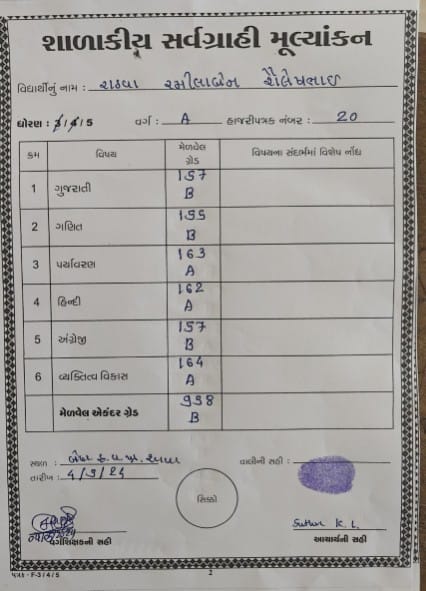 શાળાકીય સર્વગ્રાહી મૂલ્યાંકન
વિદ્યાર્થીનું નામ : રાઠવા રમીલાબેન શૈલેષભાઈ
ધોરણ : 3 / 4 / 5 વર્ગ : A હાજરીપત્રક નંબર : 20
ક્રમ વિષય મેળવેલ ગ્રેડ વિષયના સંદર્ભમાં વિશેષ નોંધ
1 ગુજરાતી 157 B
2 ગણિત 155 B
3 પર્યાવરણ 163 A
4 હિન્દી 162 A
5 અંગ્રેજી 157 B
6 વ્યક્તિત્વ વિકાસ 164 A
મેળવેલ એકંદર ગ્રેડ 958 B
સ્થળ : વાલીની સહી :
તારીખ : 4/5/24
સિક્કો
Suthar K. L.
વર્ગશિક્ષકની સહી આચાર્યની સહી
પત્રક - F-3 / 4 / 5 2